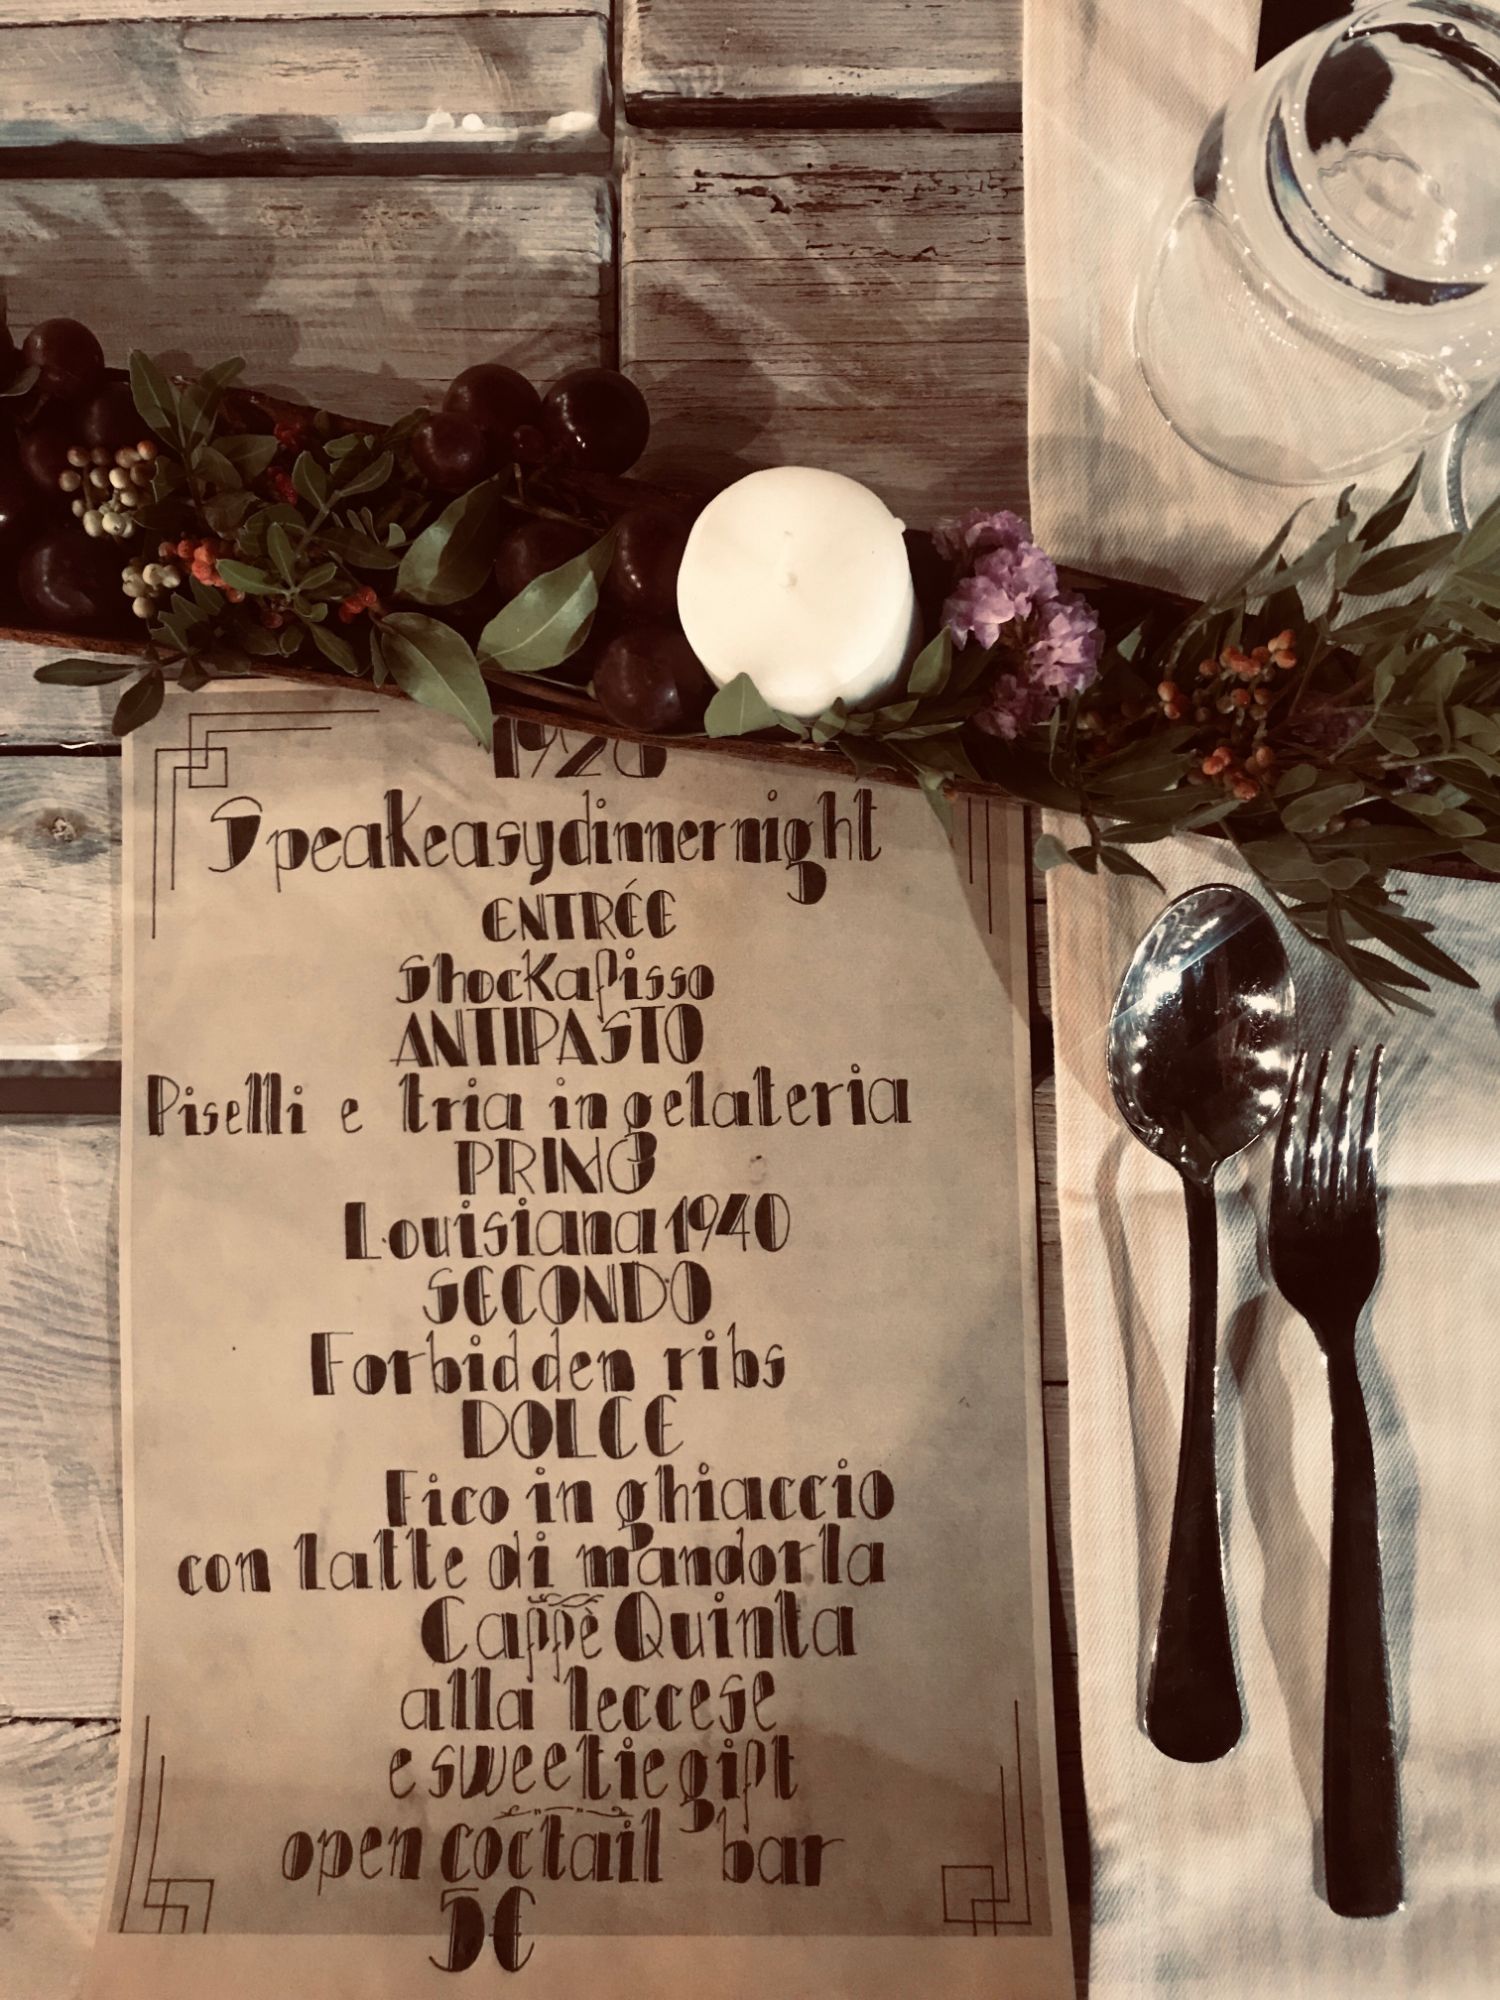 1920
Speakeasy dinner night
ENTRÉE
Shockafisso
ANTIPASTO
Piselli e tria in gelateria
PRIMO
Louisiana 1940
SECONDO
Forbidden ribs
DOLCE
Fico in ghiaccio
con latte di mandorla
Caffè Quinta
alla leccese
e sweetie gift
open coctail bar
5€